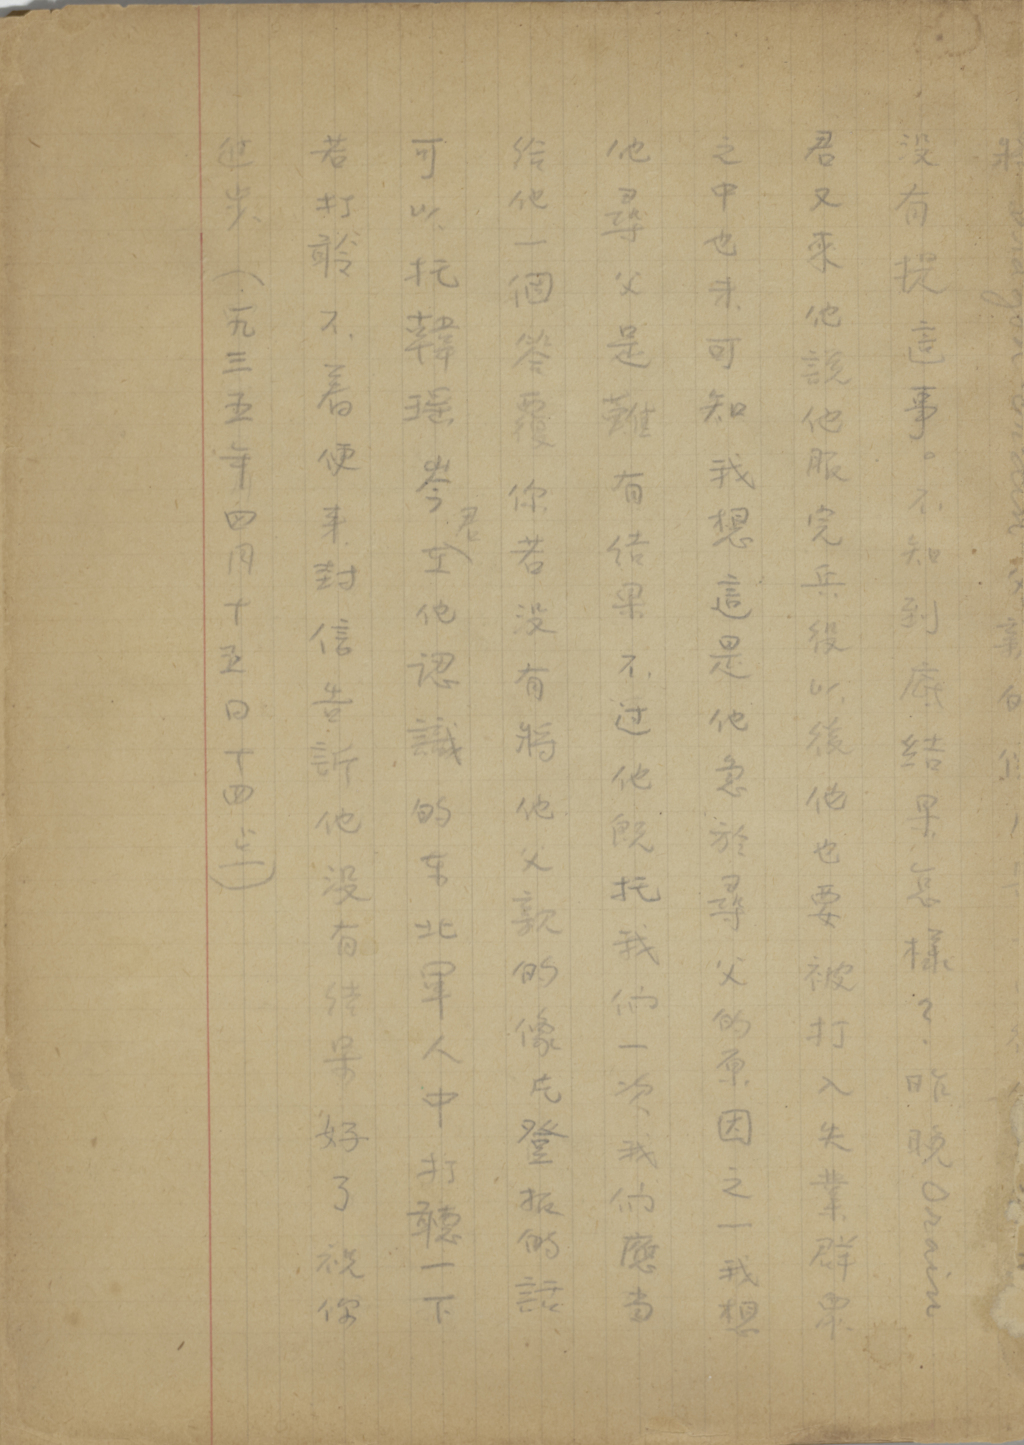 没有提這事。不知到底結果怎樣？昨晚
君又來他說他服完兵役以後他也要被打入失業群眾
之中也未可知我想這是他急於尋父的原因之一我想
他尋父是難有結果不过他既托我们一次我们應当
給他一個答覆你若没有將他父親的像片登报的話
可以托韓瑶岑君在他認識的东北軍人中打聽一下
若打聆不着便来封信告訴他没有結果好了祝你
进步（一九三五年四月十五日十四上）